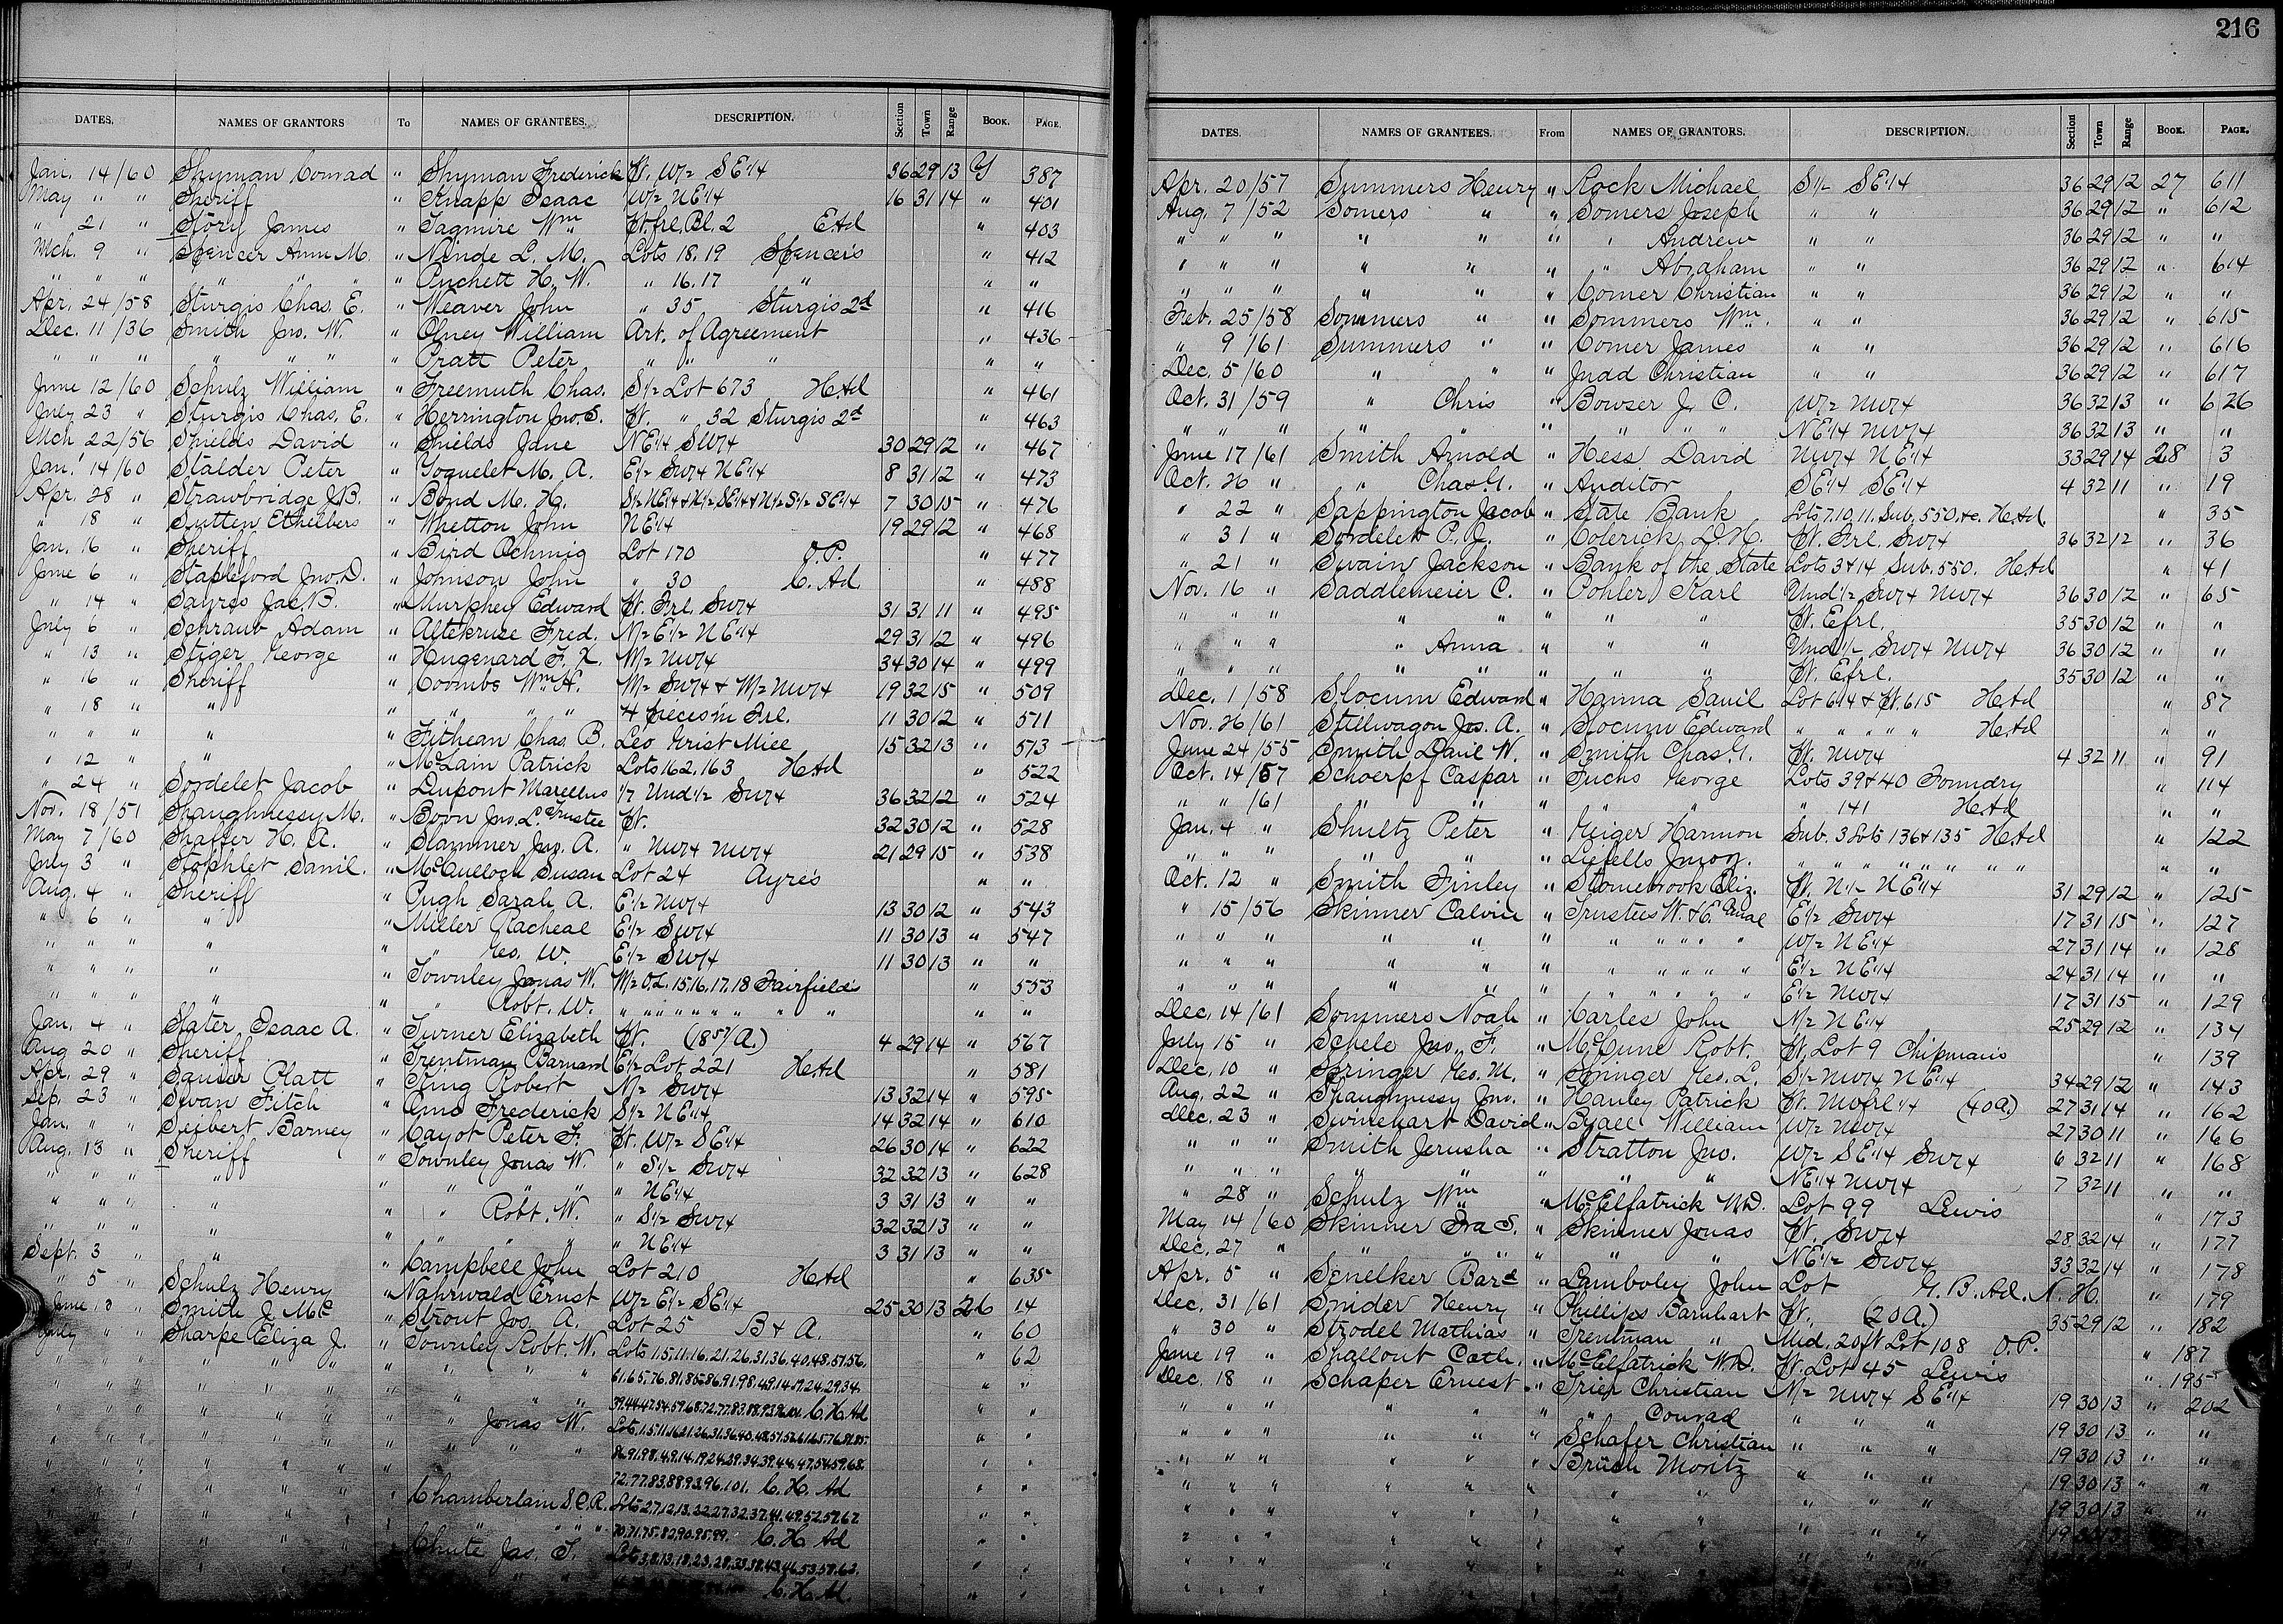 216
DATES. NAMES OF GRANTORS To NAMES OF GRANTEES. DESCRIPTION. Section Town Range Book. Page.
Jan. 14/60 Shyman Conrad " Shyman Frederick Pt. W1/2 SE1/4 36 29 13 Y 387
May " " Sheriff " Knapp Isaac W1/2 NE1/4 16 31 14 " 401
" 21 " Story James " Tagmire Wm Pt. frl. Bl. 2 E. Ad " 403
Mch. 9 " Spencer Ann M. " Ninde L. M. Lots 18. 19 Spencer's " 412
" " " " " " " Puchett H. W. " 16. 17 " " "
Apr. 24/58 Sturgis Chas. E. " Weaver John " 35 Sturgis 2d " 416
Dec. 11/36 Smith Jno. W. " Olney William Art. of Agreement " 436
" " " " " " " Pratt Peter " " " " "
June 12/60 Schulz William " Freemuth Chas. S1/2 Lot 673 H. Ad " 461
July 23 " Sturgis Chas. E. " Herrington Jno. S. Pt. " 32 Sturgis 2d " 463
Mch 22/56 Shields David " Shields Jane NE1/4 SW1/4 30 29 12 " 467
Jan. 14/60 Stalder Peter " Yoquelet M. A. E1/2 SW1/4 NE1/4 8 31 12 " 473
Apr. 28 " Strawbridge J. B. " Bond M. H. S1/2 NE1/4 & N1/2 SE1/4 & N1/2 S1/2 SE1/4 7 30 15 " 476
" 18 " Sutten Ethelbers " Whetton John NE1/4 19 29 12 " 468
Jan. 16 " Sheriff " Bird Ochmig Lot 170 O. P. " 477
June 6 " Stapleford Jno. D. " Johnson John " 30 C. Ad " 488
" 14 " Sayres Jac. B. " Murphey Edward Pt. Frl. SW1/4 31 31 11 " 495
July 6 " Schraub Adam " Altekruse Fred. N1/2 E1/2 NE1/4 29 31 12 " 496
" 13 " Stiger George " Hugenard F. X. W1/2 NW1/4 34 30 14 " 499
" 16 " Sheriff " Coombs Wm H. W1/2 SW1/4 & W1/2 NW1/4 19 32 15 " 509
" 18 " " " " " " 4 pieces in Frl. 11 30 12 " 511
" " " " " Fithean Chas. B. Leo Grist Mill 15 32 13 " 513
" 12 " " " McLain Patrick Lots 162. 163 H. Ad " 522
" 24 " Sordelet Jacob " Dupont Marellus 1/7 Und 1/2 SW1/4 36 32 12 " 524
Nov. 18/51 Shaughnessy M. " Boon Jno. L. Trustee Pt. 32 30 12 " 528
May 7/60 Shaffer H. A. " Slammer Jno. A. " NW1/4 NW1/4 21 29 15 " 538
July 3 " Stophlet Saml. " McCulloch Susan Lot 24 Ayres " "
Aug. 4 " Sheriff " Pugh Sarah A. E1/2 NW1/4 13 30 12 " 543
" 6 " " " Miller Racheal E1/2 SW1/4 11 30 13 " 547
" " " " " " Geo. W. E1/2 SW1/4 11 30 13 " "
" " " " " Townley Jonas W. W1/2 O. L. 15. 16. 17. 18 Fairfield's " 553
" " " " " " Robt. W. " " " " " " " " " "
Jan. 4 " Slater Isaac A. " Turner Elizabeth Pt. (18 57/ A.) 4 29 14 " 567
Aug 20 " Sheriff " Trentman Barnard E1/2 Lot 221 H. Ad " 581
Apr. 29 " Sanser Platt " King Robert N1/2 SW1/4 13 32 14 " 595
Sep. 23 " Swan Fitch " Amo Frederick S1/2 NE1/4 14 32 14 " 610
Jan. " " Seibert Barney " Cayot Peter F. Pt. W1/2 SE1/4 26 30 14 " 622
Aug. 13 " Sheriff " Townley Jonas W. " S1/2 SW1/4 32 32 13 " 628
" " " " " " " " " NE1/4 3 31 13 " "
" " " " " " Robt. W. " S1/2 SW1/4 32 32 13 " "
" " " " " " " " " NE1/4 3 31 13 " "
Sept. 3 " " " Campbell John Lot 210 H. Ad " 635
" 5 " Schulz Henry " Nahrwald Ernst W1/2 E1/2 SE1/4 25 30 13 26 14
June 18 " Smith J. Mc " Strout Jos. A. Lot 25 B & A. " 60
July " " Sharpe Eliza J. " Townley Robt. W. Lots 1.5.11.16.21.26.31.36.40.48.51.56. " 62
" " " " " " " " " " 61.65.76.81.85.86.91.98.49.14.19.24.29.34. " "
" " " " " " " 39.44.47.54.59.68.72.77.83.88.93.96.101 C. H. Ad " "
" " " " " " " " Jonas W. Lots 1.5.11.16.21.26.31.36.40.48.51.52.61.65.76.81.85. " "
" " " " " " " " " " 86.91.98.4.9.14.19.24.29.34.39.44.47.54.59.68. " "
" " " " " " " 72.77.83.88.93.96.101. C. H. Ad " "
" " " " " " " Chamberlain S. C. R. Lots 2.7.12.13.22.27.32.37.41.49.52.57.67. " "
" " " " " " " " " " 70.71.75.82.90.95.99. C. H. Ad " "
" " " " " " " Chute Jas. T. Lots 3.8.13.18.23.28.33.38.43.46.53.58.62. " "
C. H. Ad. " "
DATES. NAMES OF GRANTEES. From NAMES OF GRANTORS. DESCRIPTION. Section Town Range Book. Page.
Apr. 20/57 Summers Henry " Rock Michael S1/2 SE1/4 36 29 12 27 611
Aug. 7/52 Somers " " Somers Joseph " " 36 29 12 " 612
" " " " " " " Andrew " " 36 29 12 " "
" " " " " " " Abraham " " 36 29 12 " 614
" " " " " " Comer Christian " " 36 29 12 " "
Feb. 25/58 Sommers " " Sommers Wm. " " 36 29 12 " 615
" 9/61 Summers " " Comer James " " 36 29 12 " 616
Dec. 5/60 " " " Judd Christian " " 36 29 12 " 617
Oct. 31/59 " Chris " Bowser J. C. W1/2 NW1/4 36 32 13 " 626
" " " " " " " " " NE1/4 NW1/4 36 32 13 " "
June 17/61 Smith Arnold " Hess David NW1/4 NE1/4 33 29 14 28 3
Oct. 26 " " Chas. G. " Auditor SE1/4 SE1/4 4 32 11 " 19
" 22 " Sappington Jacob " State Bank Lots 7. 10. 11. Sub. 550. &c. H. Ad. " 35
" 31 " Sordelet P. J. " Colerick D. H. Pt. Frl. SW1/4 36 32 12 " 36
" 21 " Swain Jackson " Bank of the State Lots 3 & 14 Sub. 550. H. Ad " 41
Nov. 16 " Saddlemeier C. " Pohler Karl Und 1/2 SW1/4 NW1/4 36 30 12 " 65
" " " " " " " " Pt. E frl. 35 30 12 " "
" " " " Anna " " " Und 1/2 SW1/4 NW1/4 36 30 12 " "
" " " " " " " " Pt. E frl. 35 30 12 " "
Dec. 1/58 Slocum Edward " Hanna Saml Lot 614 & Pt. 615 H. Ad " 87
Nov. 26/61 Stellwagon Jos. A. " Slocum Edward " " " " " H. Ad " "
June 24/55 Smith Danl W. " Smith Chas. G. Pt. NW1/4 4 32 11 " 91
Oct. 14/57 Schoerpf Caspar " Fuchs George Lots 39 & 40 Foundry " 114
" " /61 " " " " " " 141 H. Ad " "
Jan. 4 " Shultz Peter " Geiger Harmon Sub. 3 Lots 136 & 135 H. Ad " 122
" " " " " " Liefells " " " " " " " " " "
Oct. 12 " Smith Finley " Stonebrook Eliz. Pt. N1/2 NE1/4 31 29 12 " 125
" 15/56 Skinner Calvin " Trustees W. & E. Canal E1/2 SW1/4 17 31 15 " 127
" " " " " " " " " " " W1/2 NE1/4 27 31 14 " 128
" " " " " " " " " " " E1/2 NE1/4 24 31 14 " "
" " " " " " " " " " " E1/2 NW1/4 17 31 15 " 129
Dec. 14/61 Sommers Noah " Karles John N1/2 NE1/4 25 29 12 " 134
July 15 " Schele Jno. F. " McCune Robt. Pt. Lot 9 Chipman's " 139
Dec. 10 " Springer Geo. M. " Springer Geo. L. S1/2 NW1/4 NE1/4 34 29 12 " 143
Aug. 22 " Shaughnessy Jno. " Hanley Patrick Pt. NW frl 1/4 (40 A.) 27 31 14 " 162
Dec. 23 " Swinehart David " Byall William W1/2 NW1/4 27 30 11 " 166
" " " Smith Jerusha " Stratton Jno. W1/2 SE1/4 SW1/4 6 32 11 " 168
" " " " " " " " NE1/4 NW1/4 7 32 11 " "
" 28 " Schulz Wm " McElfatrick W. D. Lot 99 Lewis " 173
May 14/60 Skinner Ira S. " Skinner Jonas Pt. SW1/4 28 32 14 " 177
Dec. 27 " " " " " " " NE1/2 SW1/4 33 32 14 " 178
Apr. 5 " Senelker Bard " Lamboley John Lot G. B. Ad. N. H. " 179
Dec. 31/61 Snider Henry " Phillips Barnhart Pt. (20 A.) 35 29 12 " 182
" 30 " Strodel Mathias " Trentman " Mid. 20 ft Lot 108 O. P. " 187
June 19 " Shallout Cath. " McElfatrick W. D. Pt. Lot 45 Lewis " 195
Dec. 18 " Schaper Ernest " Trier Christian N1/2 NW1/4 SE1/4 19 30 13 " 202
" " " " " " " Conrad " " " 19 30 13 " "
" " " " " " Schafer Christian " " " 19 30 13 " "
" " " " " " Bruch Moritz " " " 19 30 13 " "
" " " " " " " " " " " 19 30 13 " "
" " " " " " " " " " " 19 30 13